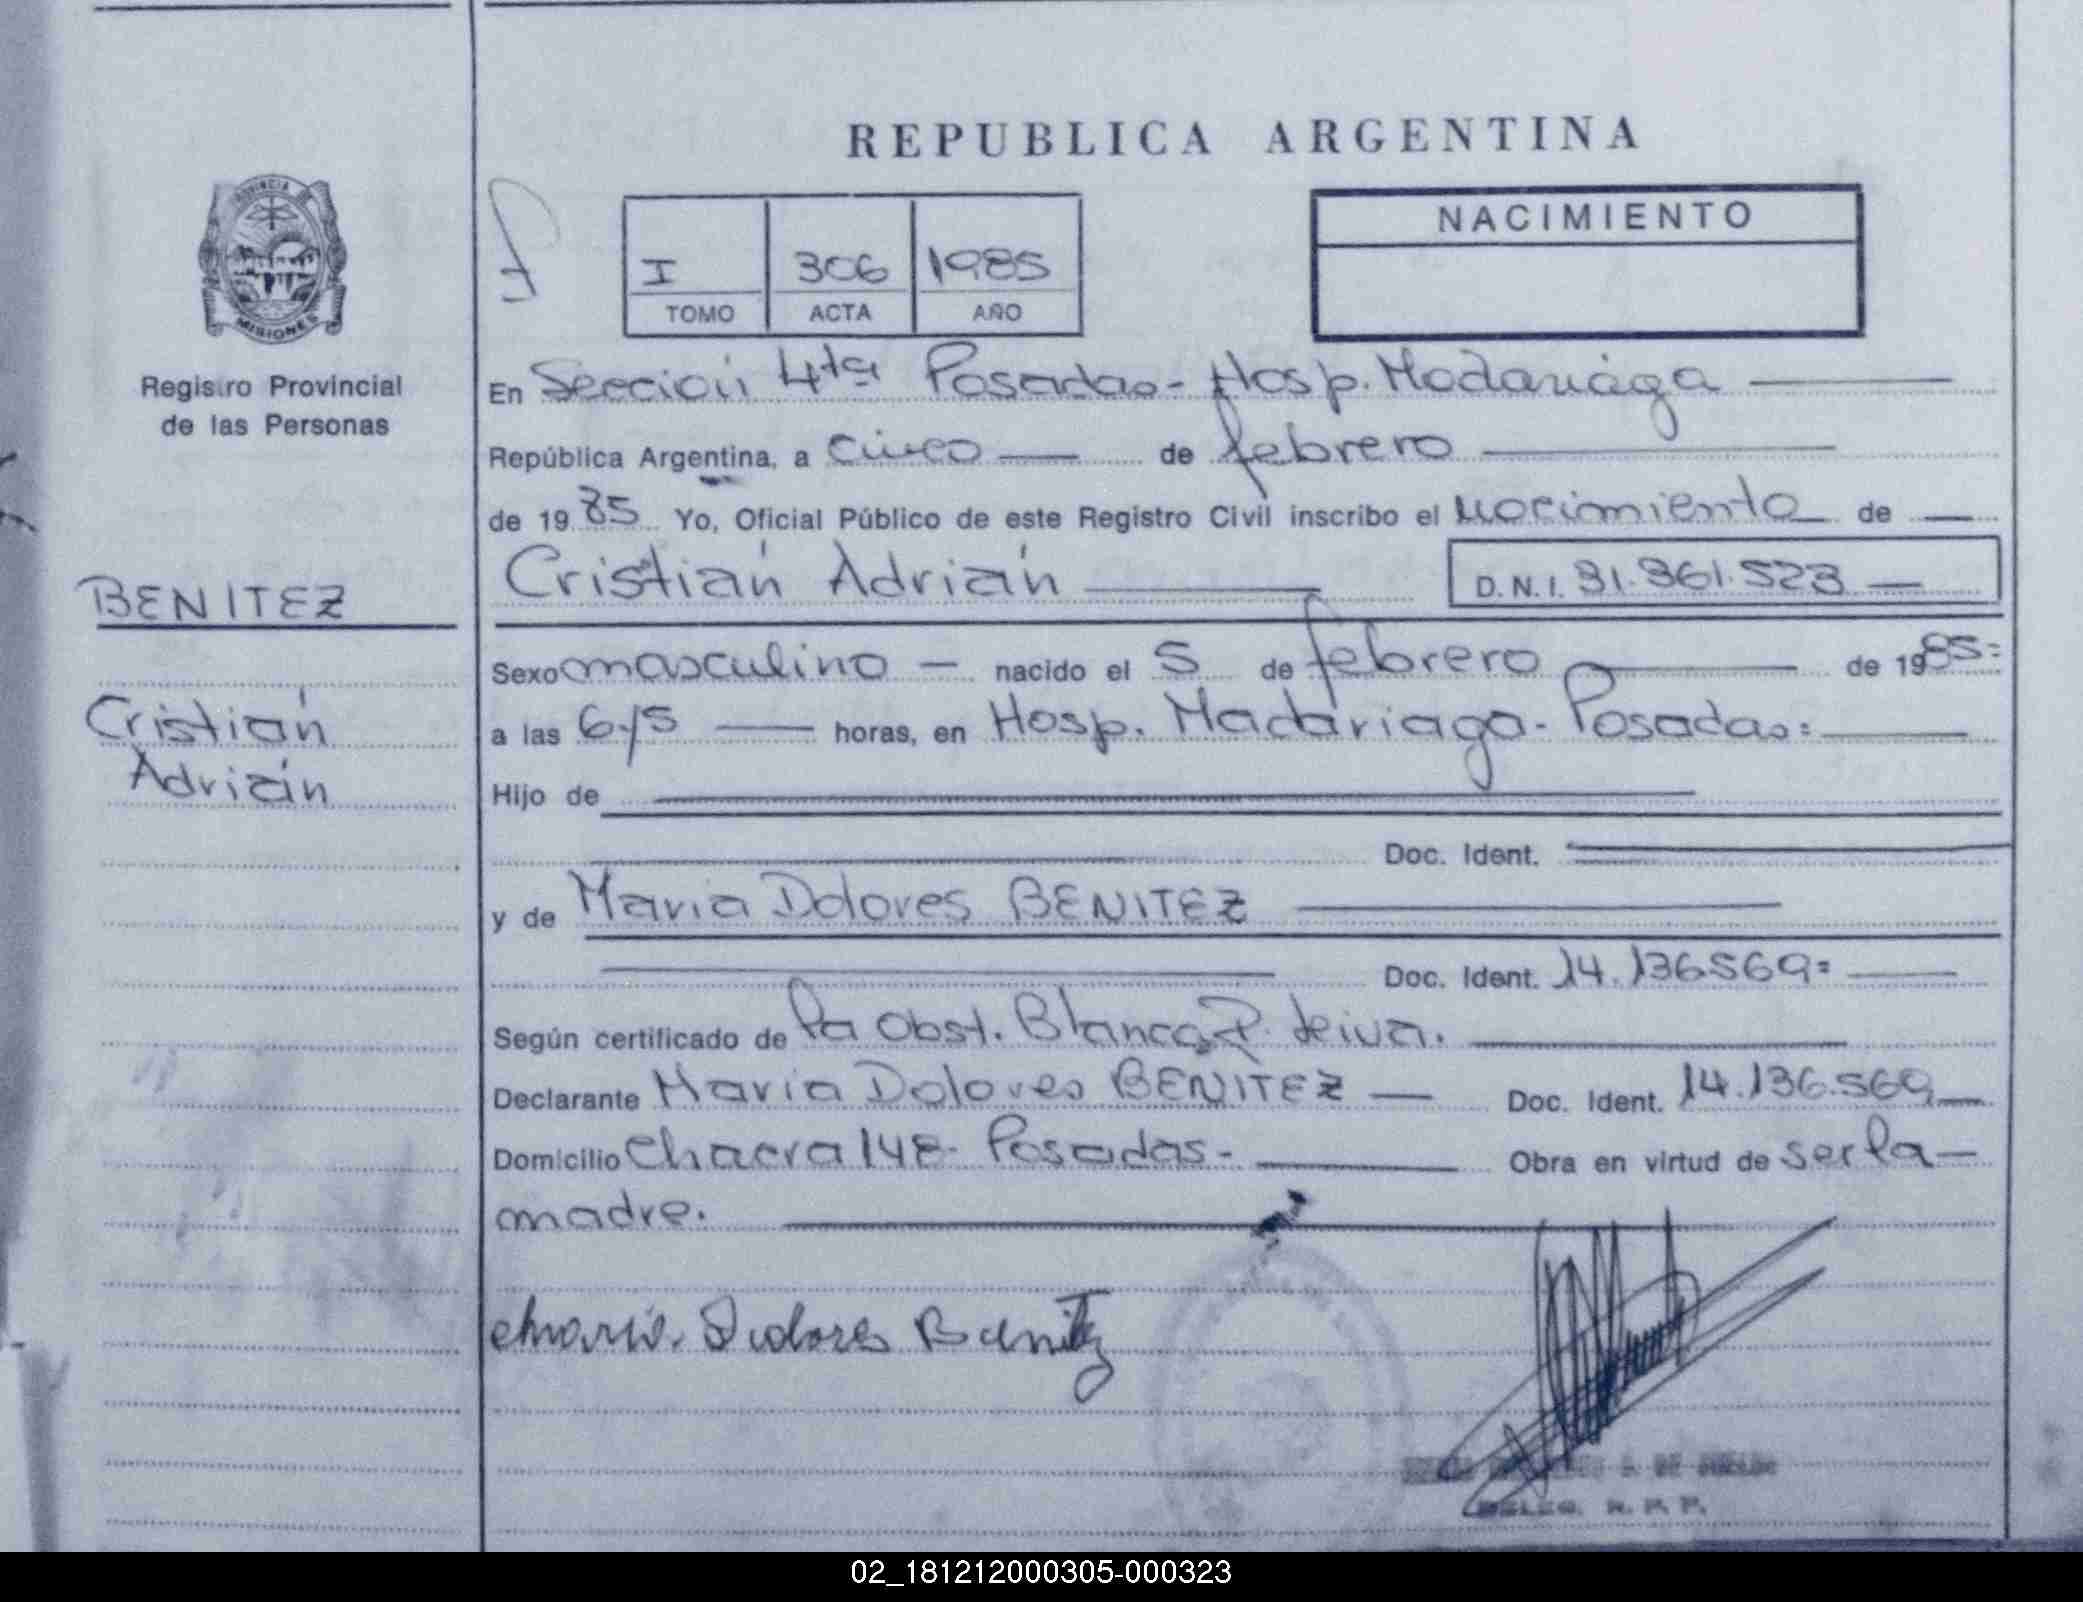 REPUBLICA ARGENTINA
PROVINCIA
MISIONES
Registro Provincial
de las Personas
I 306 1985
TOMO ACTA AÑO
NACIMIENTO
En Sección 4ta Posadas - Hosp. Madariaga
República Argentina, a cinco de febrero
de 1985 Yo, Oficial Público de este Registro Civil inscribo el nacimiento de
Cristián Adrián D.N.I. 31.361.523
BENITEZ
Cristián
Adrián
Sexo masculino nacido el 5 de febrero de 1985=
a las 6y5 horas, en Hosp. Madariaga - Posadas=
Hijo de
Doc. Ident.
y de Maria Dolores BENITEZ
Doc. Ident. 14.136569=
Según certificado de la Obst. Blanca P. Leiva.
Declarante Maria Dolores BENITEZ Doc. Ident. 14.136.569
Domicilio Chacra 148- Posadas- Obra en virtud de ser la
madre.
Maria Dolores Benitez
DELEG. R. P. P.
02_181212000305-000323